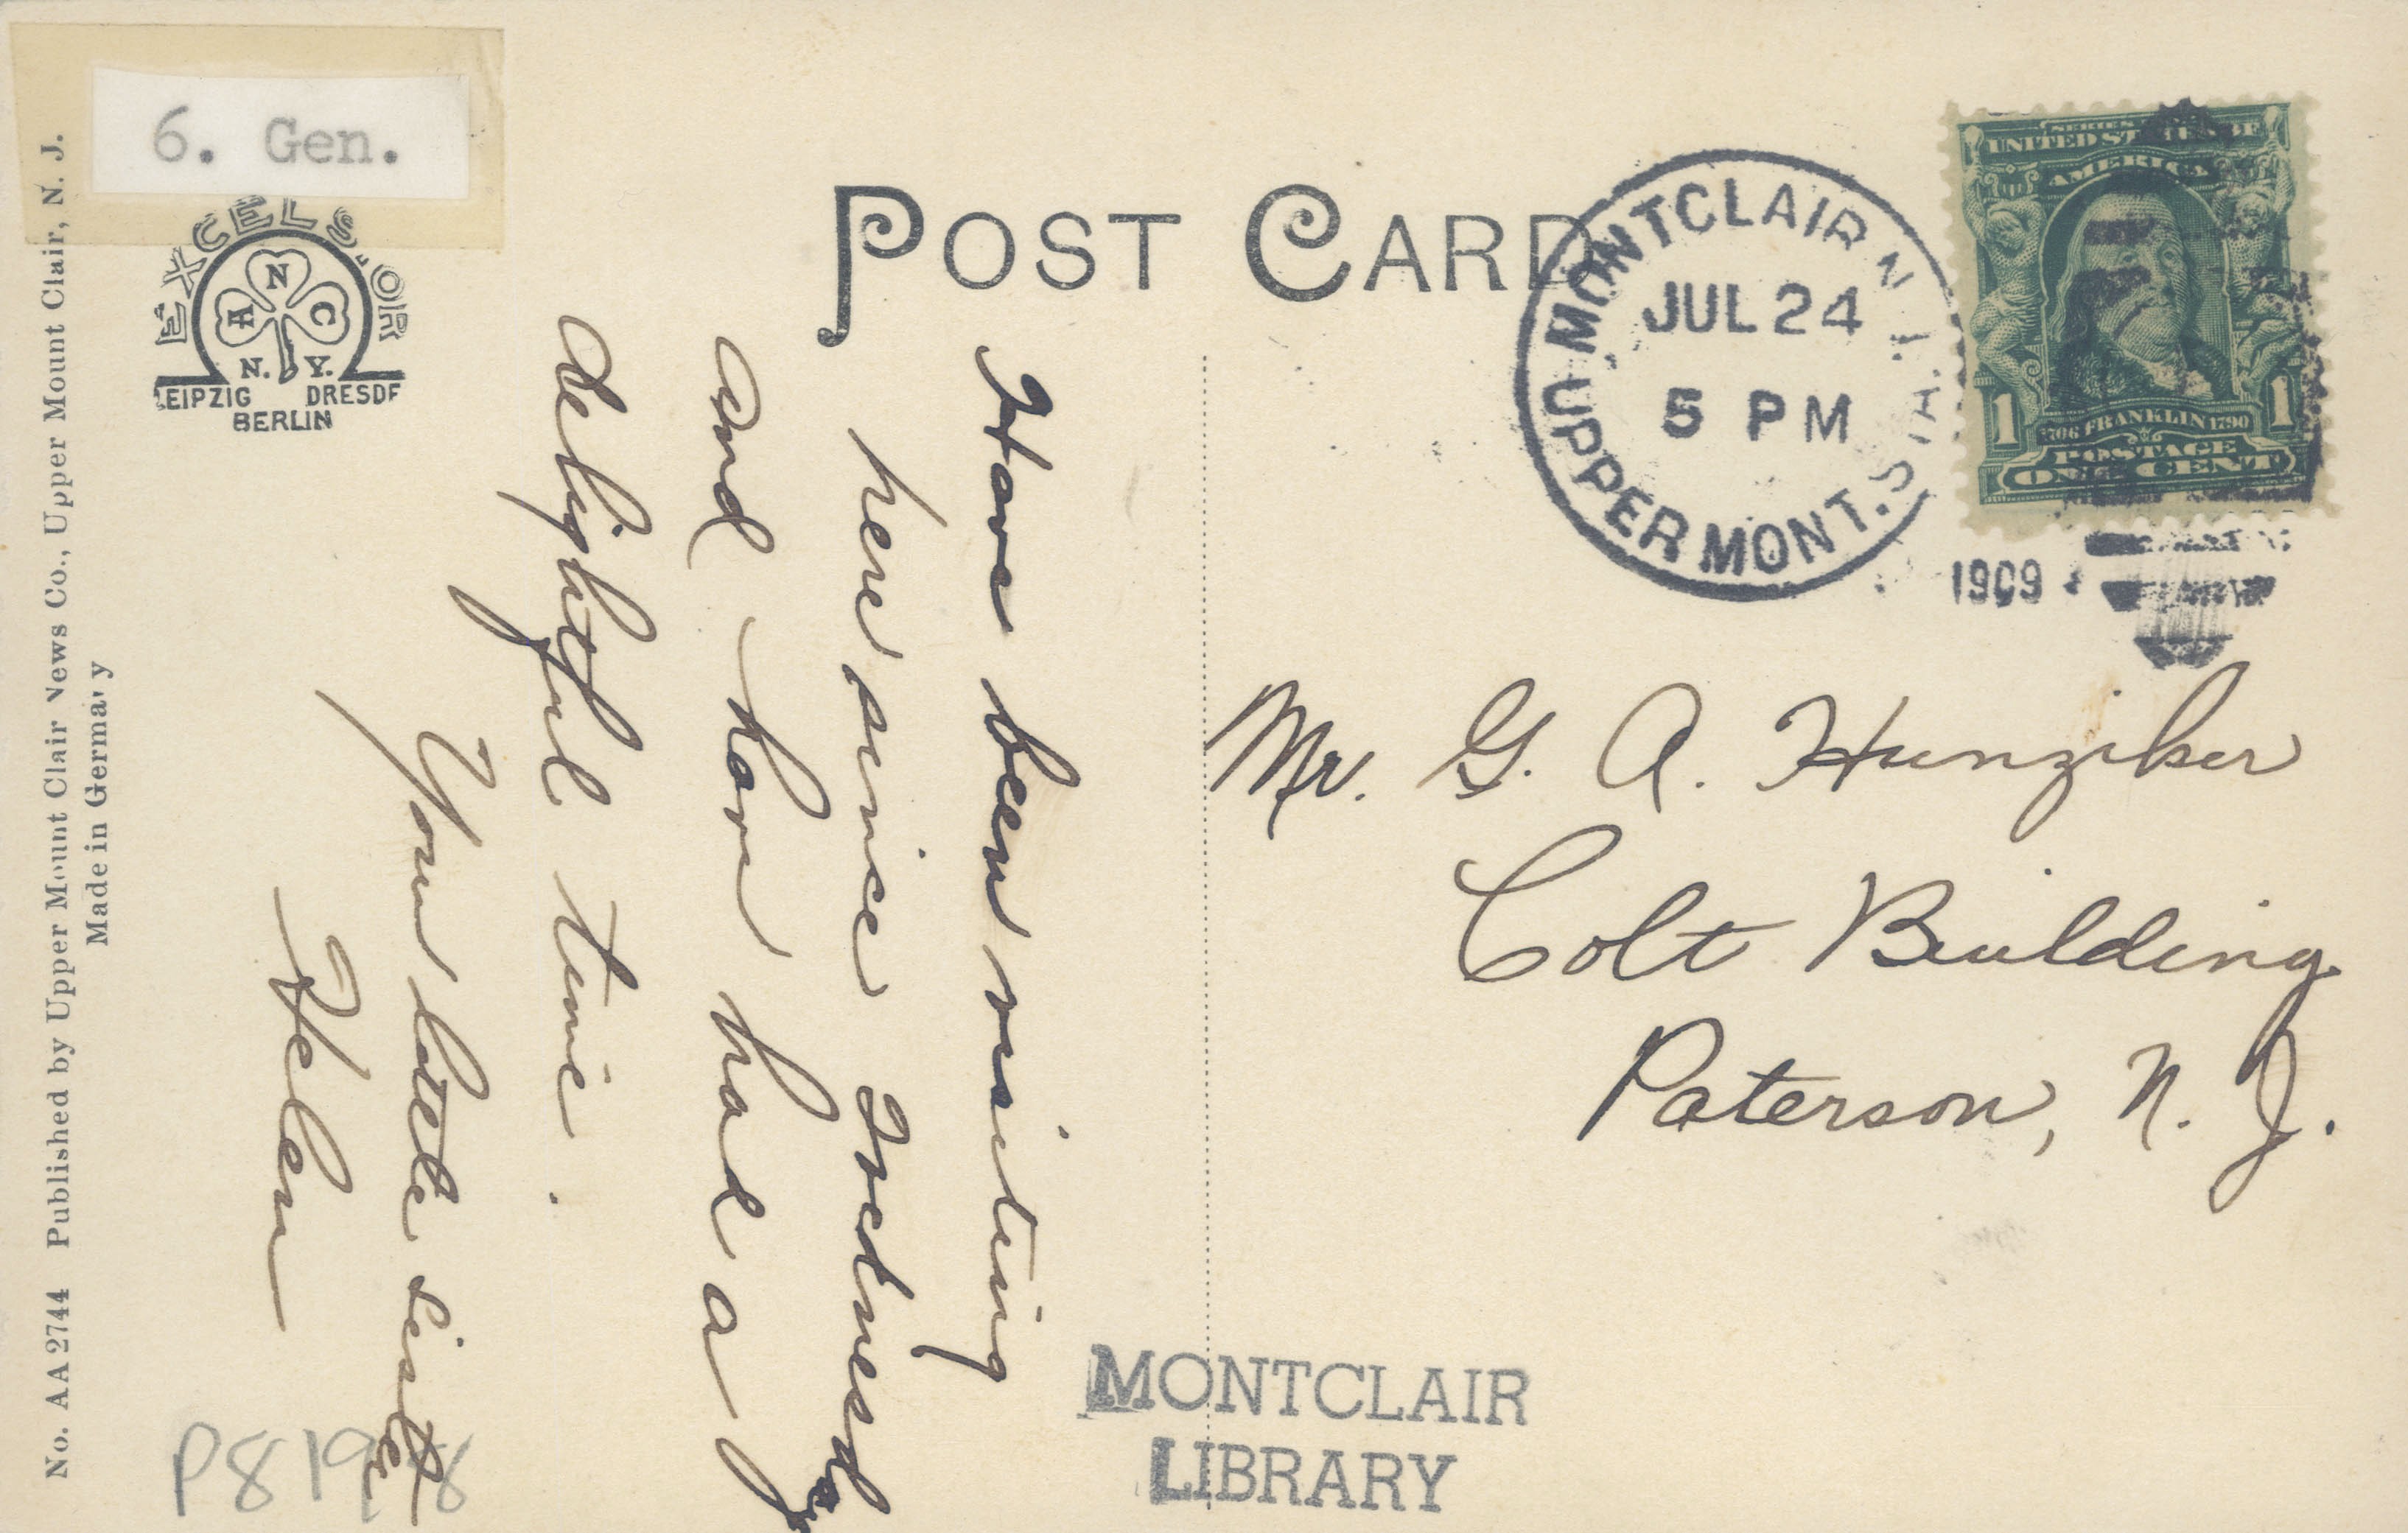 6. Gen.
EXCELSIOR
A N C
N. Y.
LEIPZIG DRESDE
BERLIN
No. AA 2744 Published by Upper Mount Clair News Co., Upper Mount Clair, N. J.
Made in Germany
POST CARD
UPPER MONTCLAIR N. J.
JUL 24
5 PM
UPPER MONT. STA.
1909
SERIES
UNITED STATES OF
AMERICA
1 1
1706 FRANKLIN 1790
POSTAGE
ONE CENT
Have been visiting
here since Wednesday
and have had a
delightful time.
Your little sister
Helen
Mr. G. A. Hunziker
Colt Building
Paterson, N. J.
MONTCLAIR
LIBRARY